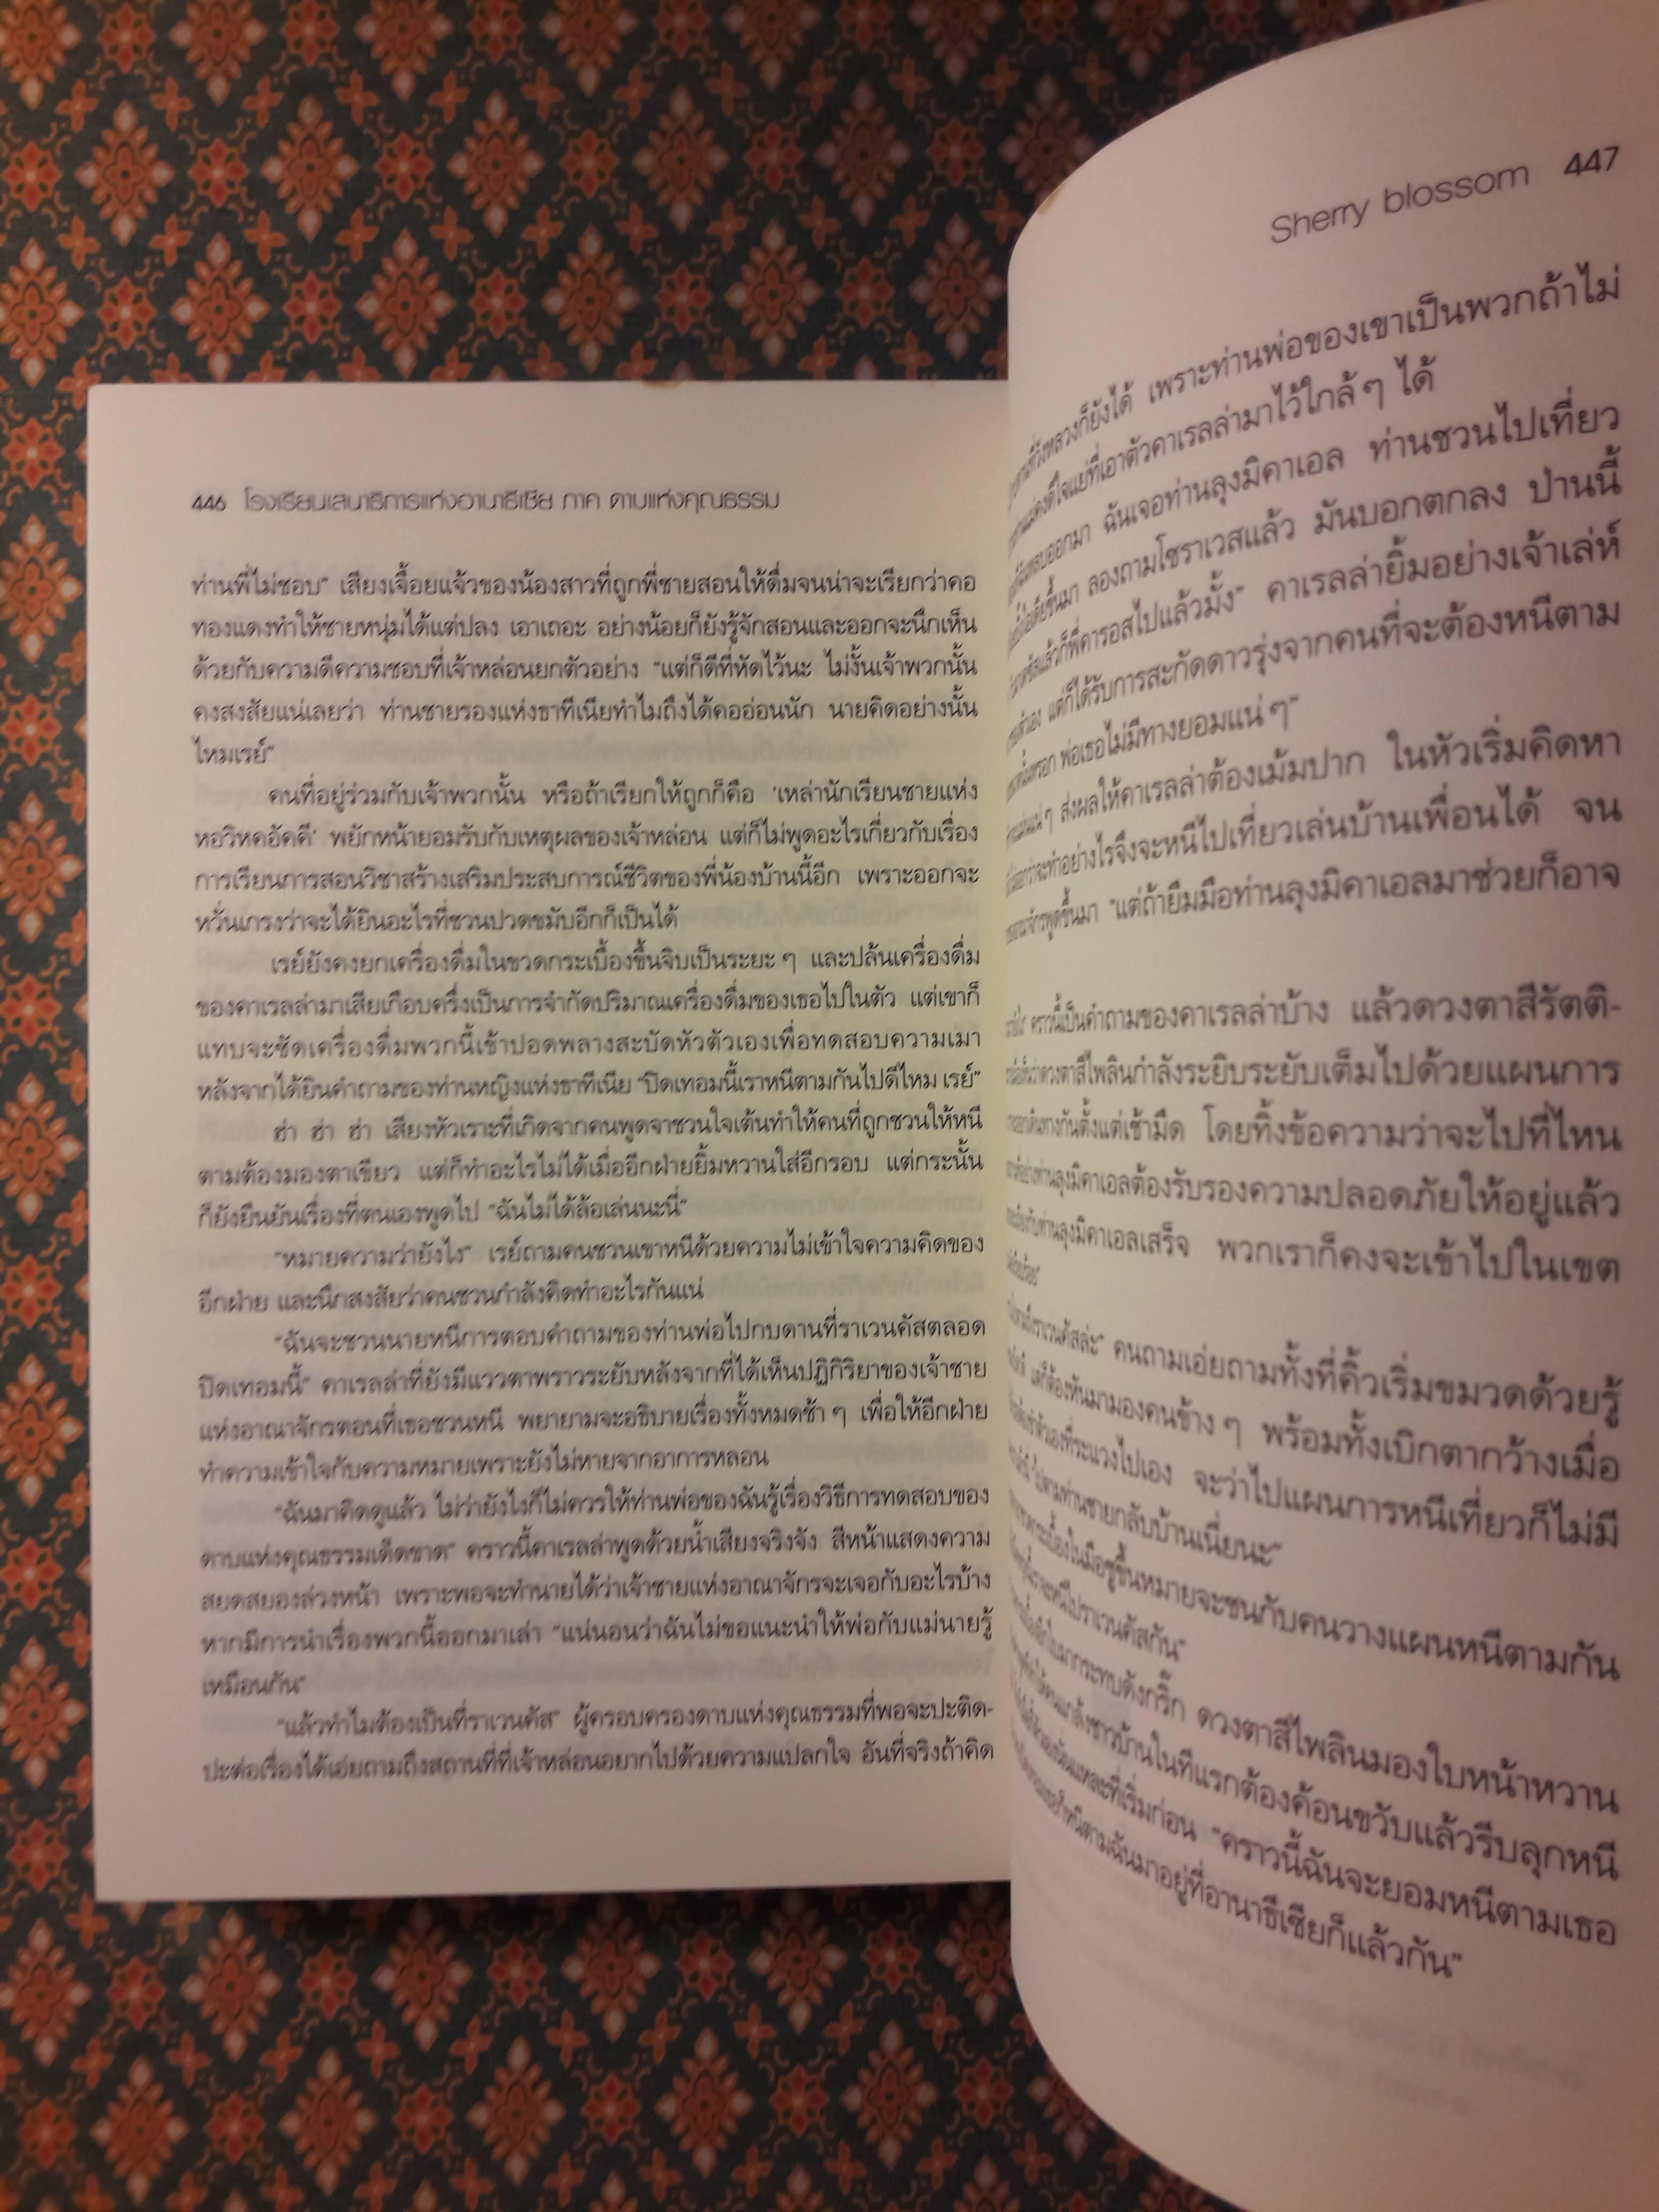 446 โรงเรียนเสนาธิการแห่งอานาธีเซีย ภาค ดาบแห่งคุณธรรม
ท่านพี่ไม่ชอบ" เสียงเจื้อยแจ้วของน้องสาวที่ถูกพี่ชายสอนให้ดื่มจนน่าจะเรียกว่าคอ
ทองแดงทำให้ชายหนุ่มได้แต่ปลง เอาเถอะ อย่างน้อยก็ยังรู้จักสอนและออกจะนึกเห็น
ด้วยกับความดีความชอบที่เจ้าหล่อนยกตัวอย่าง "แต่ก็ดีที่หัดไว้นะ ไม่งั้นเจ้าพวกนั้น
คงสงสัยแน่เลยว่า ท่านชายรองแห่งธาทีเนียทำไมถึงได้คออ่อนนัก นายคิดอย่างนั้น
ไหมเรย์"
คนที่อยู่ร่วมกับเจ้าพวกนั้น หรือถ้าเรียกให้ถูกก็คือ 'เหล่านักเรียนชายแห่ง
หอวิหคอัคคี' พยักหน้ายอมรับกับเหตุผลของเจ้าหล่อน แต่ก็ไม่พูดอะไรเกี่ยวกับเรื่อง
การเรียนการสอนวิชาสร้างเสริมประสบการณ์ชีวิตของพี่น้องบ้านนี้อีก เพราะออกจะ
หวั่นเกรงว่าจะได้ยินอะไรที่ชวนปวดขมับอีกก็เป็นได้
เรย์ยังคงยกเครื่องดื่มในขวดกระเบื้องขึ้นจิบเป็นระยะ ๆ และปล้นเครื่องดื่ม
ของคาเรลล่ามาเสียเกือบครึ่งเป็นการจำกัดปริมาณเครื่องดื่มของเธอไปในตัว แต่เขาก็
แทบจะซัดเครื่องดื่มพวกนี้เข้าปอดพลางสะบัดหัวตัวเองเพื่อทดสอบความเมา
หลังจากได้ยินคำถามของท่านหญิงแห่งธาทีเนีย "ปิดเทอมนี้เราหนีตามกันไปดีไหม เรย์"
ฮ่า ฮ่า ฮ่า เสียงหัวเราะที่เกิดจากคนพูดจาชวนใจเต้นทำให้คนที่ถูกชวนให้หนี
ตามต้องมองตาเขียว แต่ก็ทำอะไรไม่ได้เมื่ออีกฝ่ายยิ้มหวานใส่อีกรอบ แต่กระนั้น
ก็ยังยืนยันเรื่องที่ตนเองพูดไป "ฉันไม่ได้ล้อเล่นนะนี่"
"หมายความว่ายังไง" เรย์ถามคนชวนเขาหนีด้วยความไม่เข้าใจความคิดของ
อีกฝ่าย และนึกสงสัยว่าคนชวนกำลังคิดทำอะไรกันแน่
"ฉันจะชวนนายหนีการตอบคำถามของท่านพ่อไปกบดานที่ราเวนคัสตลอด
ปิดเทอมนี้" คาเรลล่าที่ยังมีแววตาพราวระยับหลังจากที่ได้เห็นปฏิกิริยาของเจ้าชาย
แห่งอาณาจักรตอนที่เธอชวนหนี พยายามจะอธิบายเรื่องทั้งหมดช้า ๆ เพื่อให้อีกฝ่าย
ทำความเข้าใจกับความหมายเพราะยังไม่หายจากอาการหลอน
"ฉันมาคิดดูแล้ว ไม่ว่ายังไงก็ไม่ควรให้ท่านพ่อของฉันรู้เรื่องวิธีการทดสอบของ
ดาบแห่งคุณธรรมเด็ดขาด" คราวนี้คาเรลล่าพูดด้วยน้ำเสียงจริงจัง สีหน้าแสดงความ
สยดสยองล่วงหน้า เพราะพอจะทำนายได้ว่าเจ้าชายแห่งอาณาจักรจะเจอกับอะไรบ้าง
หากมีการนำเรื่องพวกนี้ออกมาเล่า "แน่นอนว่าฉันไม่ขอแนะนำให้พ่อกับแม่นายรู้
เหมือนกัน"
"แล้วทำไมต้องเป็นที่ราเวนคัส" ผู้ครอบครองดาบแห่งคุณธรรมที่พอจะปะติด-
ปะต่อเรื่องได้เอ่ยถามถึงสถานที่ที่เจ้าหล่อนอยากไปด้วยความแปลกใจ อันที่จริงถ้าคิด
Sherry blossom 447
ก็ยังได้ เพราะท่านพ่อของเขาเป็นพวกถ้าไม่
ที่เอาตัวคาเรลล่ามาไว้ใกล้ ๆ ได้
ออกมา ฉันเจอท่านลุงมิคาเอล ท่านชวนไปเที่ยว
ขึ้นมา ลองถามโซราเวสแล้ว มันบอกตกลง ป่านนี้
แล้วก็พี่คารอสไปแล้วมั้ง" คาเรลล่ายิ้มอย่างเจ้าเล่ห์
แต่ก็ได้รับการสะกัดดาวรุ่งจากคนที่จะต้องหนีตาม
พ่อเธอไม่มีทางยอมแน่ ๆ"
ส่งผลให้คาเรลล่าต้องเม้มปาก ในหัวเริ่มคิดหา
ว่าจะทำอย่างไรจึงจะหนีไปเที่ยวเล่นบ้านเพื่อนได้ จน
พูดขึ้นมา "แต่ถ้ายืมมือท่านลุงมิคาเอลมาช่วยก็อาจ
คราวนี้เป็นคำถามของคาเรลล่าบ้าง แล้วดวงตาสีรัตติ-
ดวงตาสีไพลินกำลังระยิบระยับเต็มไปด้วยแผนการ
กันตั้งแต่เช้ามืด โดยทิ้งข้อความว่าจะไปที่ไหน
ท่านลุงมิคาเอลต้องรับรองความปลอดภัยให้อยู่แล้ว
กับท่านลุงมิคาเอลเสร็จ พวกเราก็คงจะเข้าไปในเขต
ราเวนคัสล่ะ" คนถามเอ่ยถามทั้งที่คิ้วเริ่มขมวดด้วยรู้
แต่ก็ต้องหันมามองคนข้าง ๆ พร้อมทั้งเบิกตากว้างเมื่อ
ตัวเองที่ระแวงไปเอง จะว่าไปแผนการหนีเที่ยวก็ไม่มี
ตามท่านชายกลับบ้านเนี่ยนะ"
ในมือชูขึ้นหมายจะชนกับคนวางแผนหนีตามกัน
หนีไปราเวนคัสกัน"
มากระทบดังกริ๊ก ดวงตาสีไพลินมองใบหน้าหวาน
แกล้งชาวบ้านในทีแรกต้องค้อนขวับแล้วรีบลุกหนี
แหละที่เริ่มก่อน "คราวนี้ฉันจะยอมหนีตามเธอ
หนีตามฉันมาอยู่ที่อานาธีเซียก็แล้วกัน"